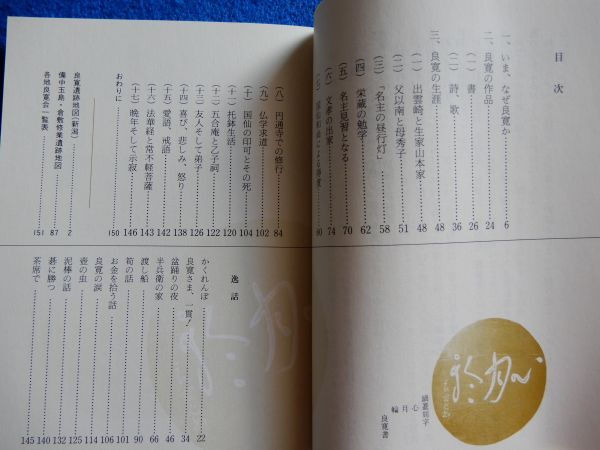 目次
一、いま、なぜ良寛か 6
二、良寛の作品 24
(一) 書 26
(二) 詩、歌 36
三、良寛の生涯 48
(一) 出雲崎と生家山本家 48
(二) 父以南と母秀子 51
(三) 「名主の昼行灯」 58
(四) 栄蔵の勉学 62
(五) 名主見習となる 70
(六) 文孝の出家 74
80
(八) 円通寺での修行 84
(九) 仏学求道 102
(十) 国仙の印可とその死 104
(十一) 托鉢生活 120
(十二) 五合庵と乙子祠 124
(十三) 友人そして弟子 126
(十四) 喜び、悲しみ、怒り 138
(十五) 愛語、戒語 142
(十六) 法華経と常不軽菩薩 143
(十七) 晩年そして示寂 146
おわりに 150
良寛遺跡地図(新潟) 2
備中玉島・倉敷修業遺跡地図 87
各地良寛会一覧表 151
鍋蓋刻字
心月輪
良寛書
逸話
かくれんぼ 22
良寛さま、一貫! 34
盆踊りの夜 46
半兵衛の家 66
渡し船 90
筍の話 101
お金を拾う話 106
良寛の涙 114
壺の虫 125
泥棒の話 132
碁に勝つ 140
茶席で 145